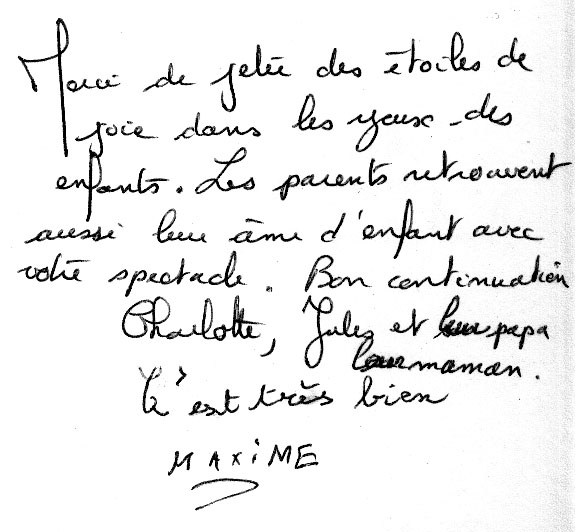 Merci de jeter des étoiles de
joie dans les yeux des
enfants. Les parents retrouvent
aussi leur âme d'enfant avec
votre spectacle. Bon continuation
Charlotte, Jules et leur papa
leur maman.
C'est très bien
MAXiME